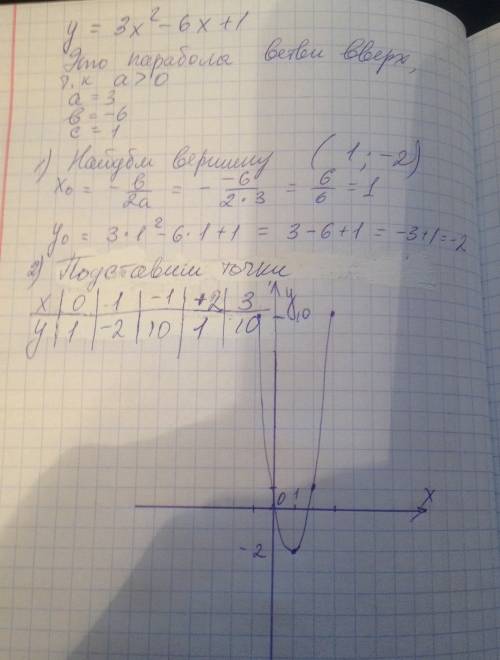 y = 3x² - 6x + 1
Это парабола ветви вверх,
т.к a > 0
a = 3
в = -6
c = 1
1) Найдём вершину (1; -2)
x₀ = - в/2a = - -6/2·3 = 6/6 = 1
y₀ = 3·1² - 6·1 + 1 = 3 - 6 + 1 = -3 + 1 = -2
2) Подставим точки
x | 0 | 1 | -1 | +2 | 3
y | 1 | -2 | 10 | 1 | 10
y
10
0 1
x
-2